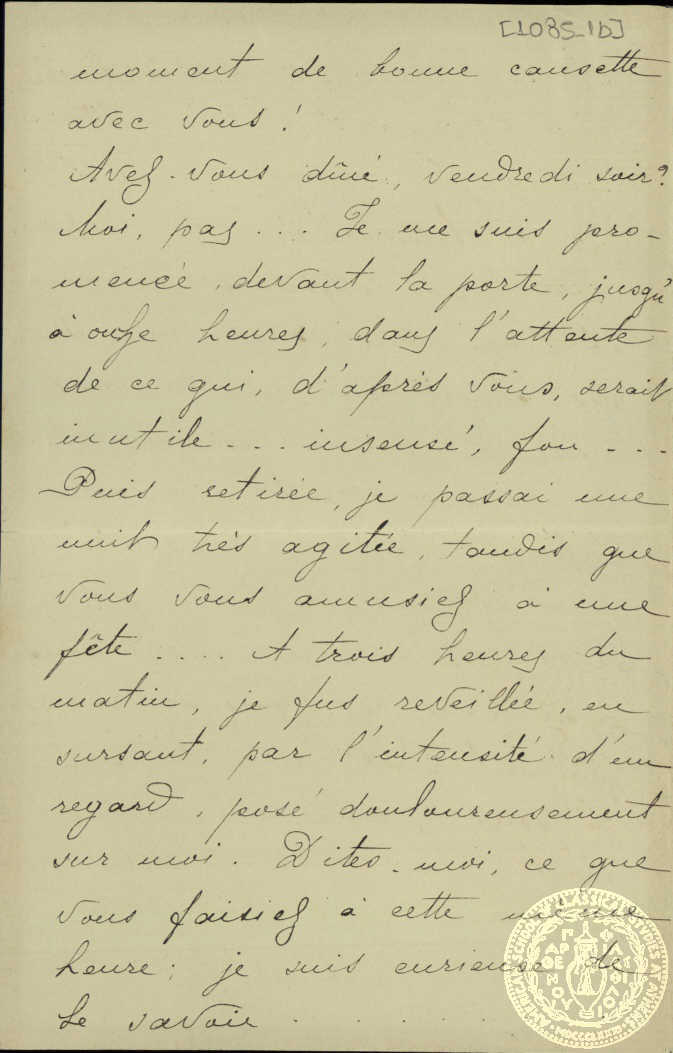 [1085-1b]
moment de bonne causette
avec vous !
Avez-vous dîné, vendredi soir ?
Moi, pas ... Je me suis pro-
mencé, devant la porte, jusqu'
à onze heures, dans l'attente
de ce qui, d'après vous, serait
inutile ... insensé, fou ...
Puis retirée, je passai une
nuit très agitée, tandis que
vous vous amusiez à une
fête .... A trois heures du
matin, je fus reveillée, en
sursaut, par l'intensité d'un
regard, posé douloureusement
sur moi. Dites-moi, ce que
vous faisiez à cette même
heure ; je suis curieuse de
le savoir . . . . . .
AMERICAN SCHOOL OF CLASSICAL STUDIES AT ATHENS
ΠΑΡΘΕΝΟΥ ΦΙΛΑΣ ΟΙΟΝ
MDCCCLXXXI